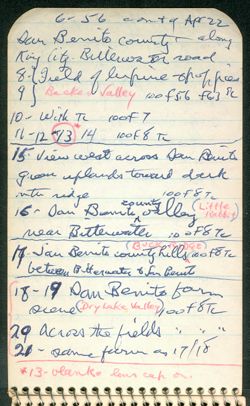 6-56 cont of Apr 22
San Benito county - along
King City - Bitterwater road
8- Field of lupine - op of pass
9 Bicker Valley 100 of 56 f63
10- With Tc 100 of 7
11-12-13*14 100 of 8 Tc
15- View west across San Benito
green uplands toward dark
ridge 100 of 8 Tc
16- San Benito county valley (Little Rabbit
near Bitterwater 100 of 8 Tc
17- San Benito county hills 100 of 8 Tc
between Bitterwater & San Benito
18-19 San Benito farm
scene (Dry Lake Valley) 100 of 8 Tc
20 Across the fields " " "
21 - same farm as 17/18
*13- blank lens cap on.